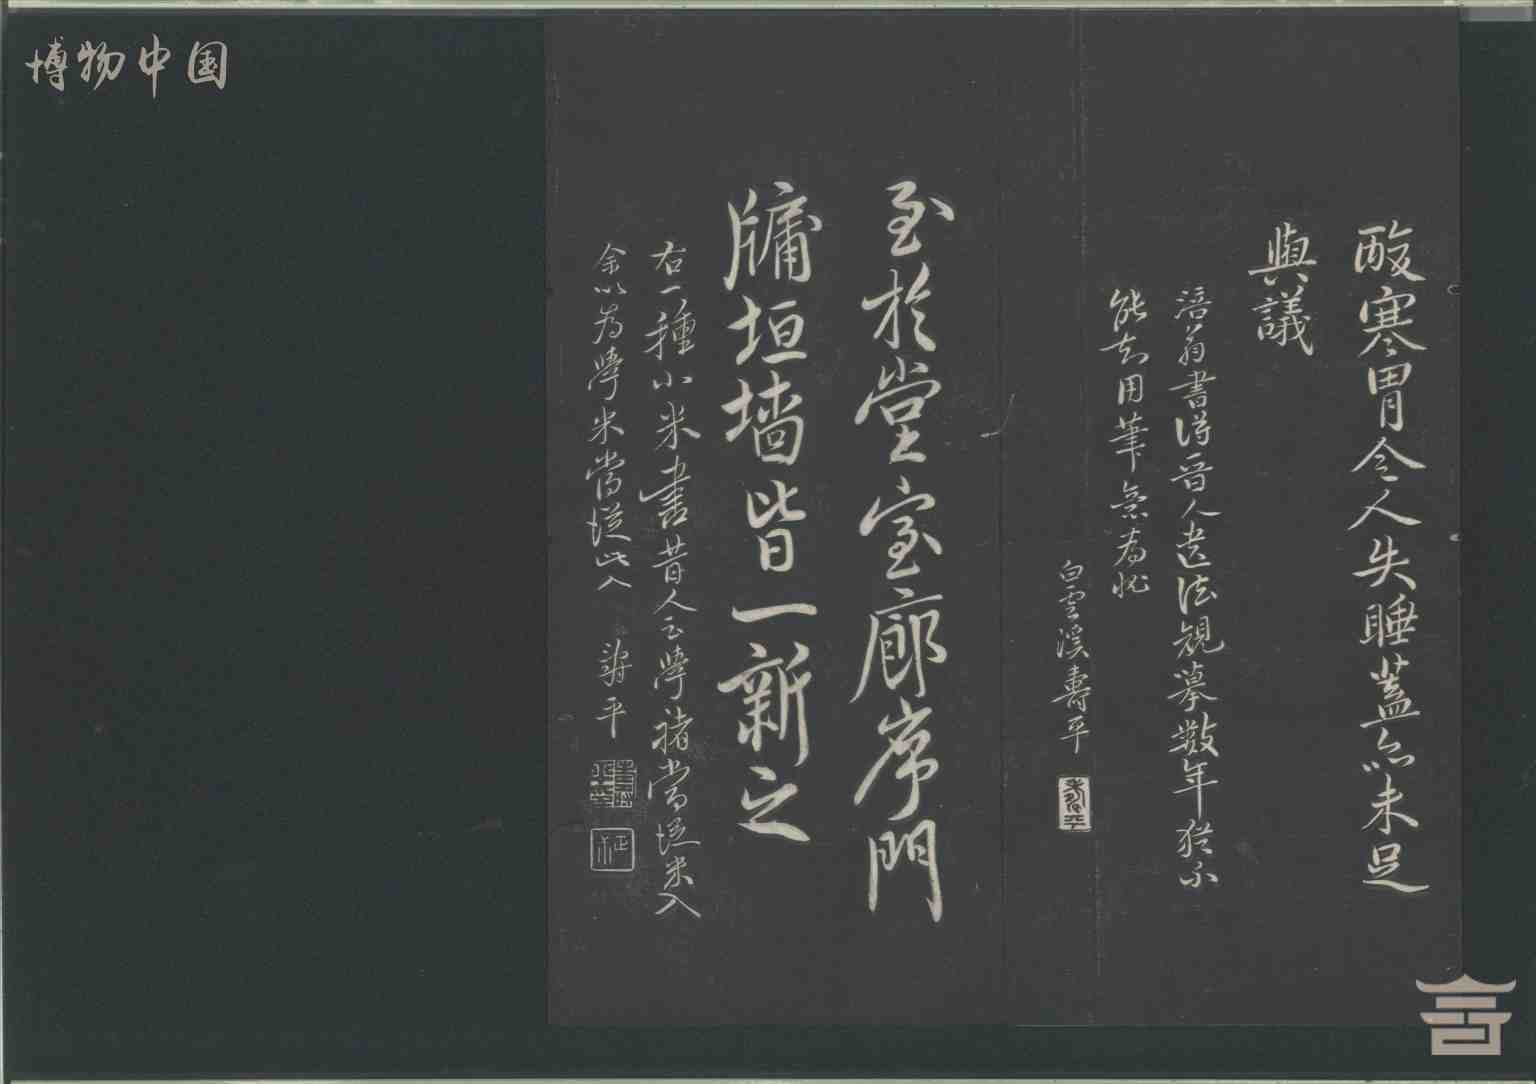 博物中国
酸寒胃令人失睡蓋亦未足
與議
涪翁書得晋人遗法觀摹數年猶不
能知用筆無為此
白雲溪壽平
壽平
至於堂室廊序門
牗垣墙皆一新之
右一種小米書昔人云學褚當從米入
余以為學米當從此入
壽平